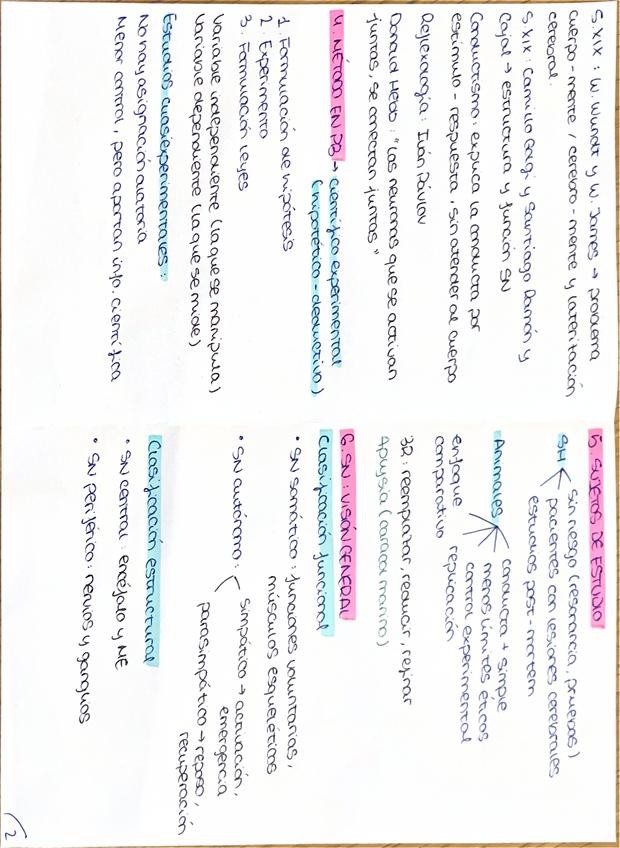 S XIX: W. Wundt y W. James → problema
cuerpo-mente / cerebro-mente y lateritación
cerebral.
S XIX: Camillo Golgi y Santiago Ramón y
Cajal → estructura y función SN
Conductismo: explica la conducta por
estímulo-respuesta, sin atender al cuerpo
Reflexología: Iván Pávlov
Donald Hebb: "Las neuronas que se activan
juntas, se conectan juntas"
4. MÉTODO EN PB → Científico experimental
(hipotético-deductivo)
1. Formulación de hipótesis
2. Experimento
3. Formulación leyes
Variable independiente (la que se manipula)
Variable dependiente (la que se mide)
Estudios cuasiexperimentales:
No hay asignación aleatoria
Menor control, pero aportan info. científica
5. SUJETOS DE ESTUDIO
SH
sin riesgo (resonancia, pruebas)
pacientes con lesiones cerebrales
estudios post-mortem
Animales
conducta + simple
menos límites éticos
control experimental
replicación
enfoque
comparativo
3R: reemplazar, reducir, refinar
Aplysia (caracol marino)
6. SN: VISIÓN GENERAL
Clasificación funcional
• SN somático: funciones voluntarias,
músculos esqueléticos
• SN autónomo:
simpático → activación,
emergencia
parasimpático → reposo,
recuperación
Clasificación estructural
• SN central: encéfalo y ME
• SN periférico: nervios y ganglios
2